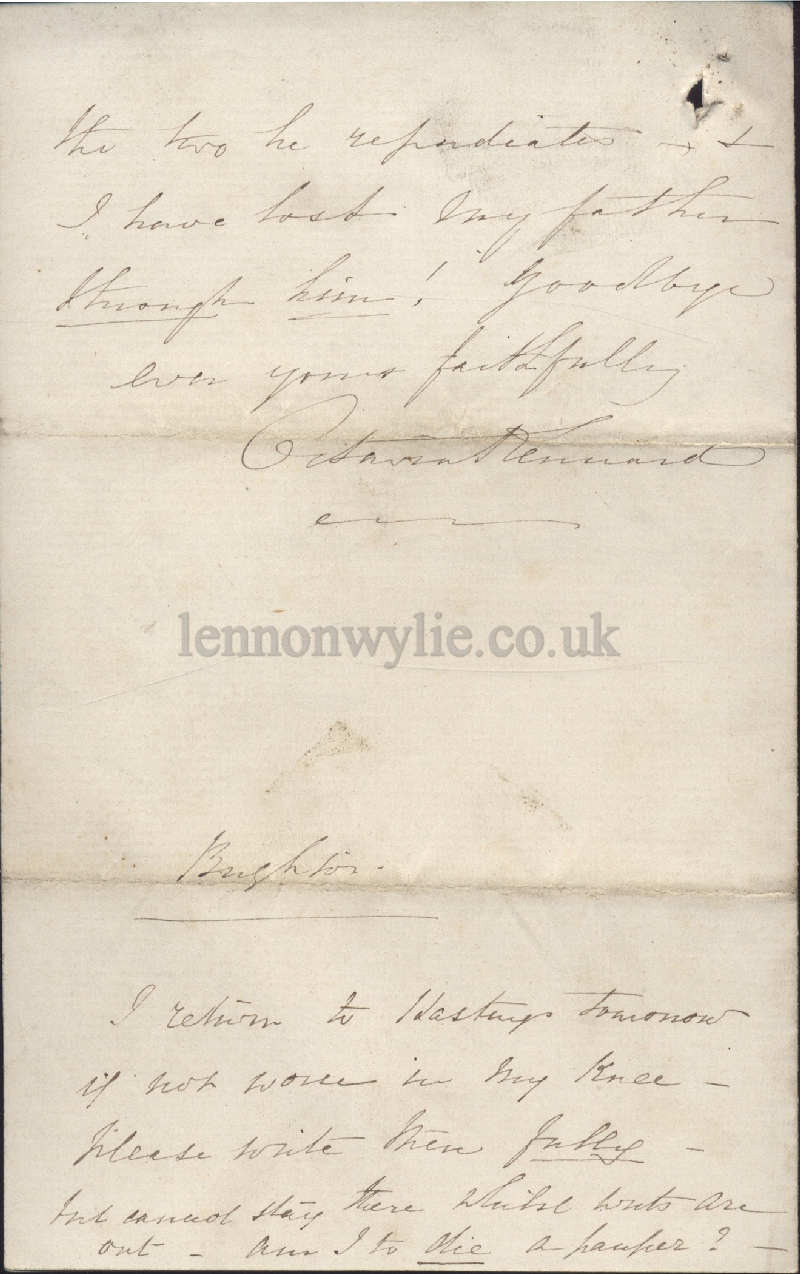 the two he repudiates - &
I have lost my father
through him! Goodbye
ever yours faithfully
Octavia Kennard
lennonwylie.co.uk
Brighton -
I return to Hastings tomorrow
if not worse in my Knee -
Please write there fully -
but cannot stay there whilst writs are
out - am I to die a pauper? -